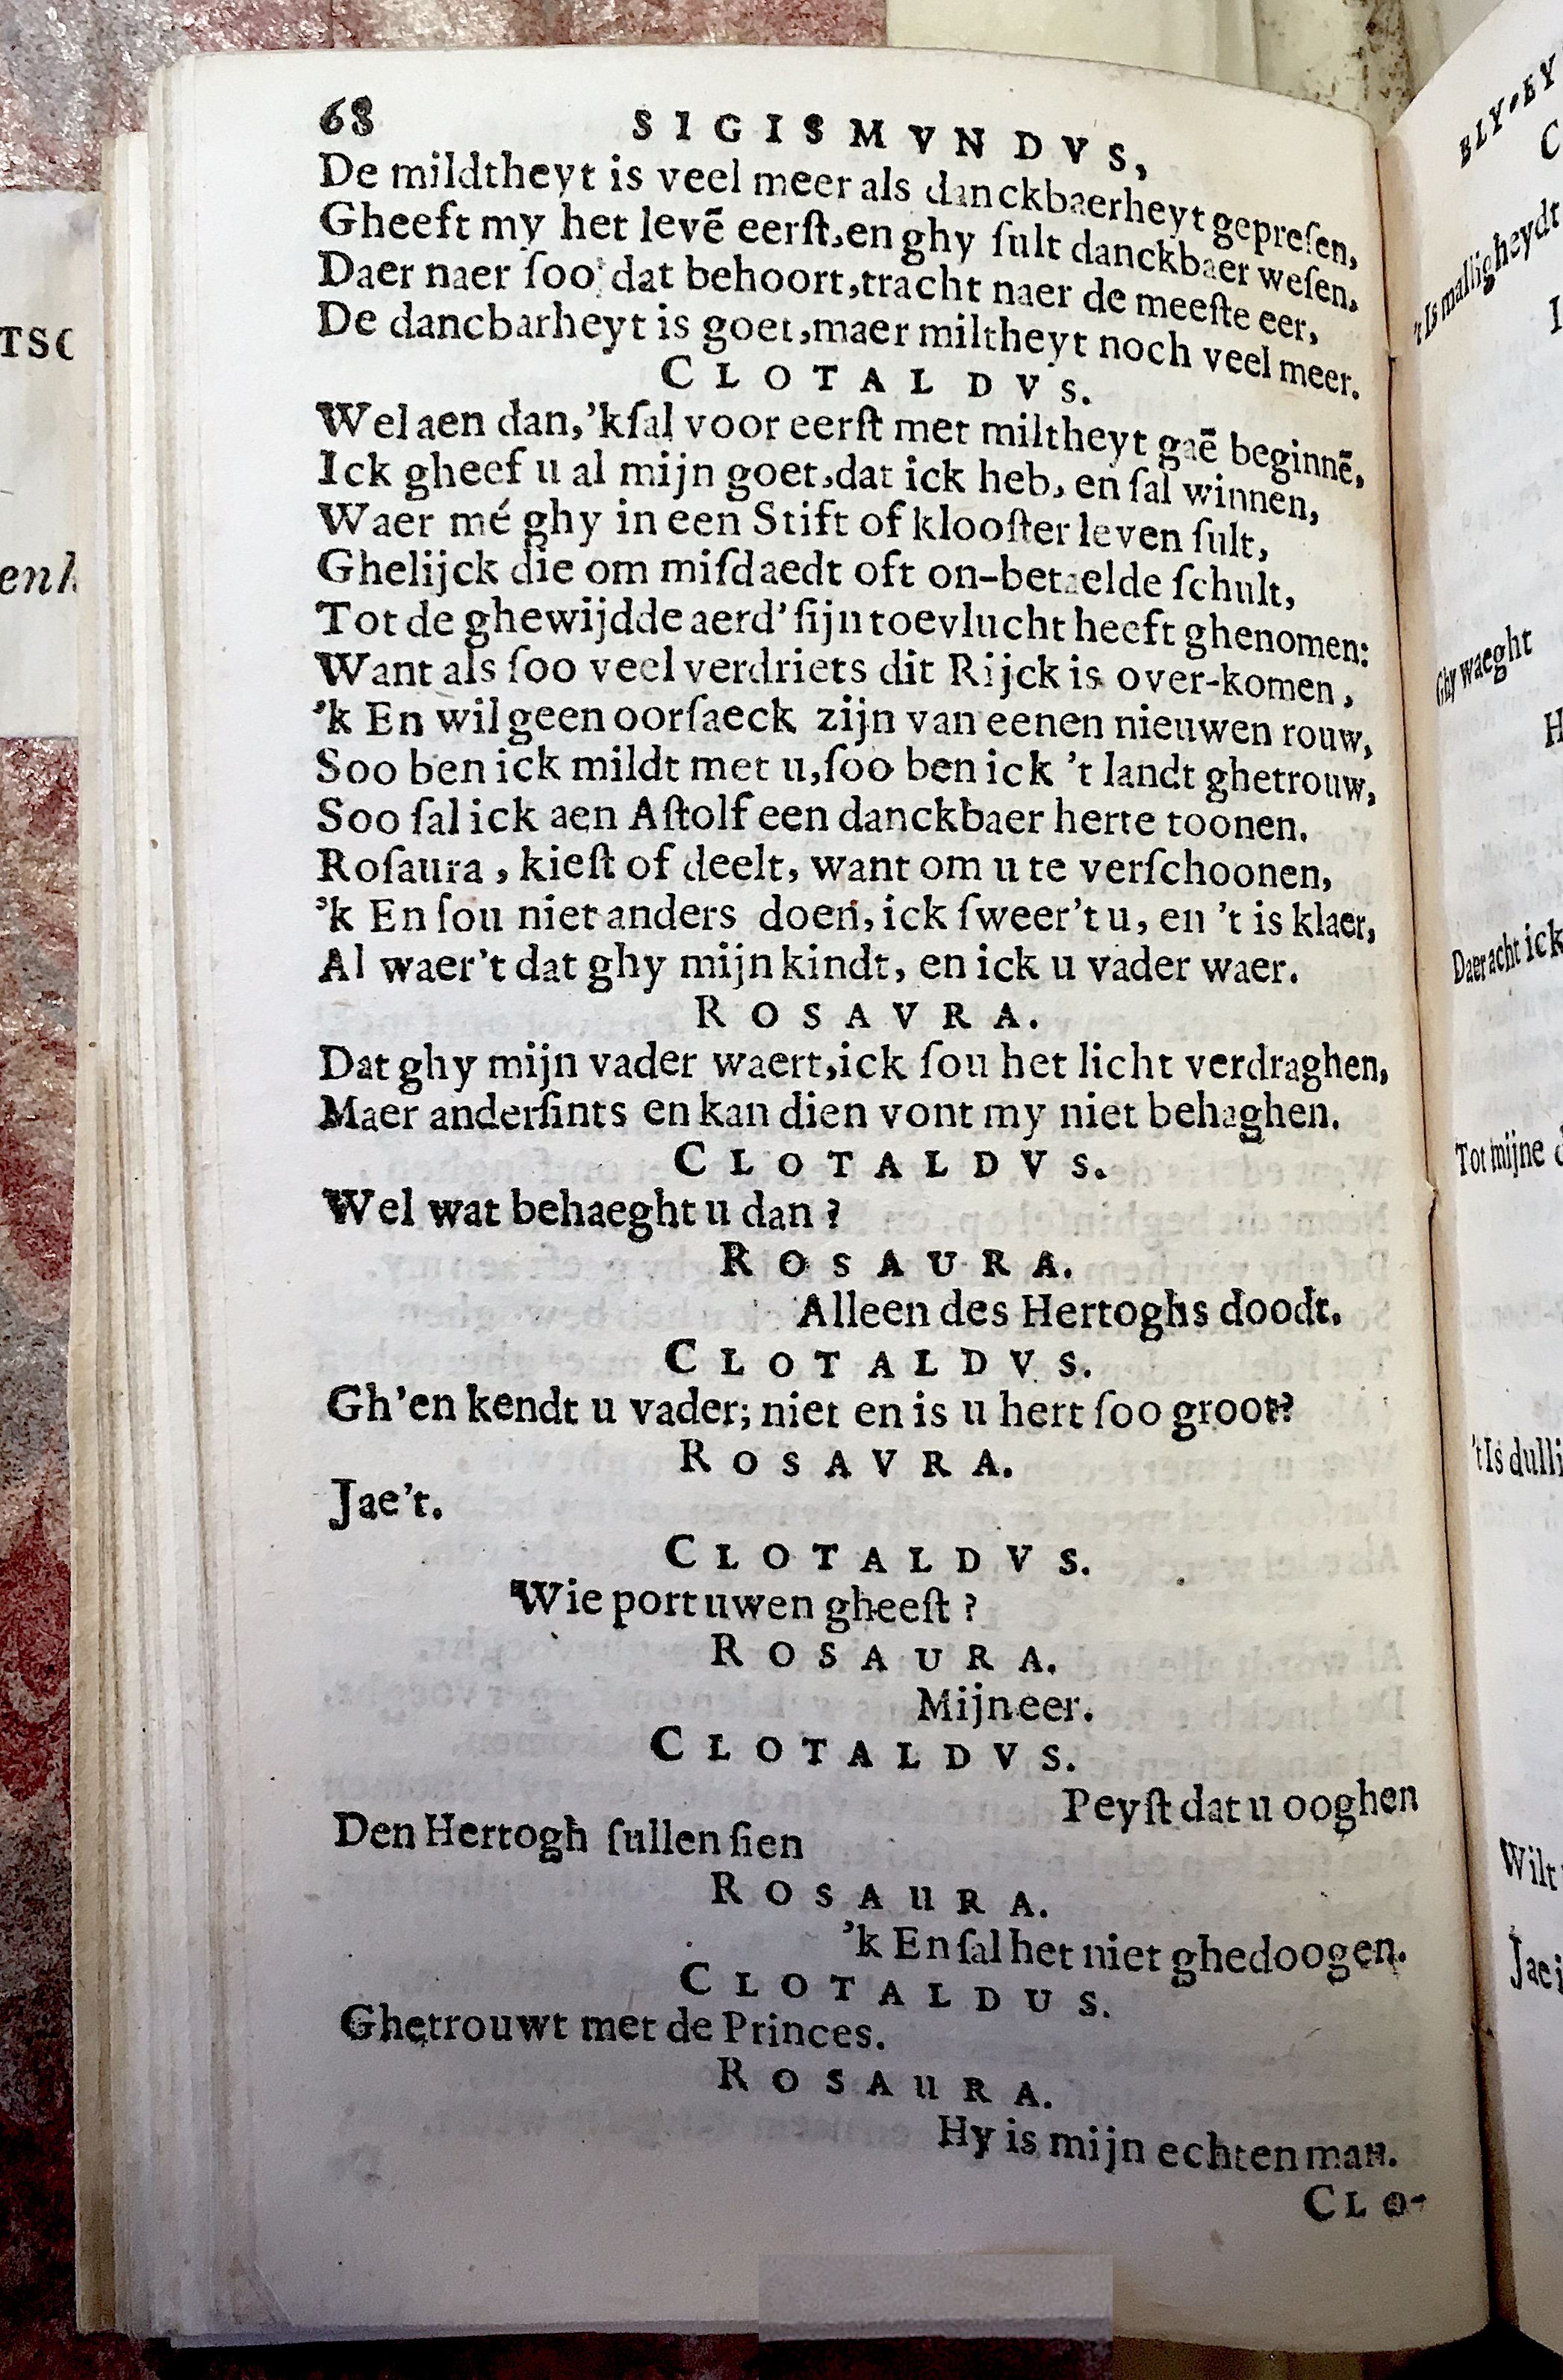 68 SIGISMVNDVS,
De mildtheyt is veel meer als danckbaerheyt gepreſen,
Gheeft my het levē eerſt,en ghy ſult danckbaer weſen,
Daer naer ſoo dat behoort,tracht naer de meeſte eer,
De dancbarheyt is goet,maer miltheyt noch veel meer.
CLOTALDVS.
Wel aen dan,'kſal voor eerſt met miltheyt gaē beginnē,
Ick gheef u al mijn goet,dat ick heb, en ſal winnen,
Waer mé ghy in een Stift of klooſter leven ſult,
Ghelijck die om miſdaedt oft on-betaelde ſchult,
Tot de ghewijdde aerd' ſijn toevlucht heeft ghenomen:
Want als ſoo veel verdriets dit Rijck is over-komen,
'k En wil geen oorſaeck zijn van eenen nieuwen rouw,
Soo ben ick mildt met u,ſoo ben ick 't landt ghetrouw,
Soo ſal ick aen Aſtolf een danckbaer herte toonen.
Roſaura, kieſt of deelt, want om u te verſchoonen,
'k En ſou niet anders doen, ick ſweer't u, en 't is klaer,
Al waer't dat ghy mijn kindt, en ick u vader waer.
ROSAVRA.
Dat ghy mijn vader waert,ick ſou het licht verdraghen,
Maer anderſints en kan dien vont my niet behaghen.
CLOTALDVS.
Wel wat behaeght u dan?
ROSAURA.
Alleen des Hertoghs doodt.
CLOTALDVS.
Gh'en kendt u vader; niet en is u hert ſoo groot?
ROSAVRA.
Jae't.
CLOTALDVS.
Wie port uwen gheeſt?
ROSAURA.
Mijn eer.
CLOTALDVS.
Peyſt dat u ooghen
Den Hertogh ſullen ſien
ROSAURA.
'k En ſal het niet ghedoogen.
CLOTALDUS.
Ghetrouwt met de Princes.
ROSAURA.
Hy is mijn echten man.
CLO-
TSC
BLY-EY
C
't Is malligheydt
I
Ghy waeght
H
Daer acht ick
Tot mijne
't Is dulli
Wilt
Jae i